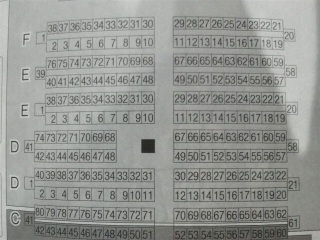 38 37 36 35 34 33 32 31 30 29 28 27 26 25 24 23 22 21
F 1 20
2 3 4 5 6 7 8 9 10 11 12 13 14 15 16 17 18 19
76 75 74 73 72 71 70 69 68 67 66 65 64 63 62 61 60 59
E 39 58
40 41 42 43 44 45 46 47 48 49 50 51 52 53 54 55 56 57
38 37 36 35 34 33 32 31 30 29 28 27 26 25 24 23 22 21
E 1 20
2 3 4 5 6 7 8 9 10 11 12 13 14 15 16 17 18 19
74 73 72 71 70 69 68 67 66 65 64 63 62 61 60 59
D 41 58
42 43 44 45 46 47 48 49 50 51 52 53 54 55 56 57
40 39 38 37 36 35 34 33 32 31 30 29 28 27 26 25 24 23 22
D 1 21
2 3 4 5 6 7 8 9 10 11 12 13 14 15 16 17 18 19 20
80 79 78 77 76 75 74 73 72 71 70 69 68 67 66 65 64 63 62
C 41 61
42 43 44 45 46 47 48 49 50 51 52 53 54 55 56 57 58 59 60